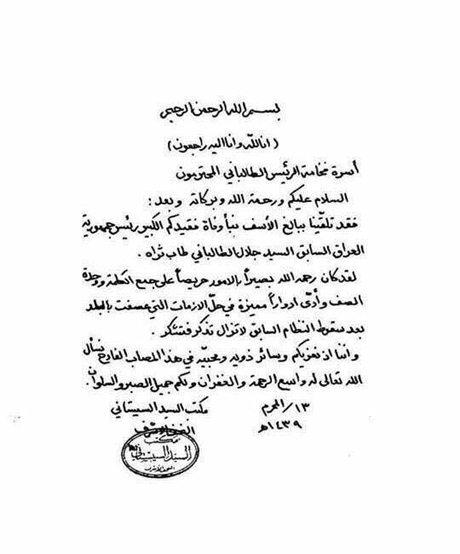 بسم الله الرحمن الرحيم
(انا لله وانا اليه راجعون)
أسرة فخامة الرئيس الطالباني المحترمون
السلام عليكم ورحمة الله وبركاته وبعد :
فقد تلقّينا ببالغ الأسف نبأ وفاة فقيدكم الكبير رئيس جمهورية
العراق السابق السيد جلال الطالباني طاب ثراه .
لقد كان رحمه الله بصيراً بالامور حريصاً على جمع الكلمة ووحدة
الصف وأدّى ادواراً مميزة في حلّ الازمات التي عصفت بالبلد
بعد سقوط النظام السابق لاتزال تذكر فتشكر .
واننا اذ نعزيكم وسائر ذويه ومحبّيه في هذا المصاب الفادح نسأل
الله تعالى له واسع الرحمة والغفران ولكم جميل الصبر والسلوان .
١٣/ المحرم مكتب السيد السيستاني
١٤٣٩هـ النجف الاشرف
مكتب
السيد السيستاني
النجف الاشرف